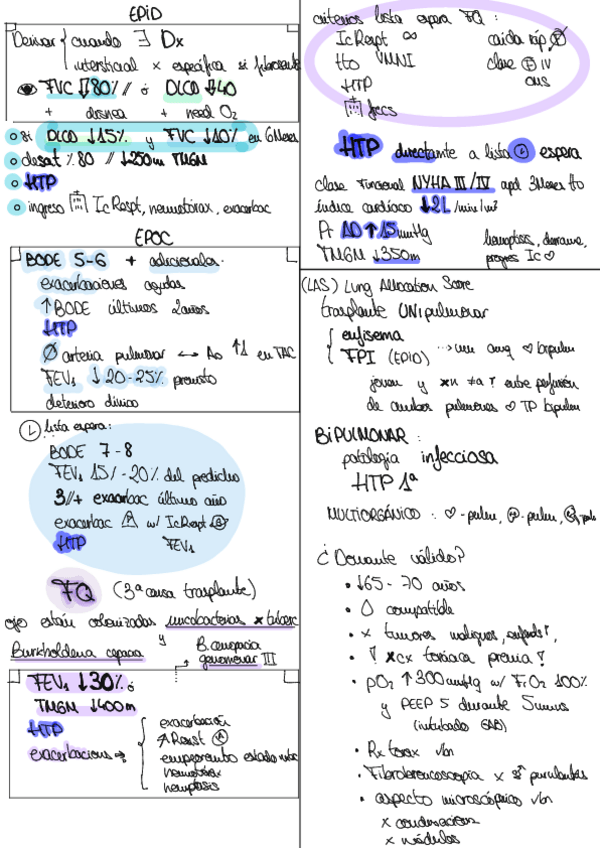 EPID
Derivar cuando ∃ Dx
intersticial x específica si fibrosante
FVC ↓80% // ó DLCO ↓40
+ disnea + neces O2
si DLCO ↓15% y FVC ↓10% en 6Meses
desat % 80 // ↓250m TM6M
HTP
ingreso IcRespt, neumotórax, exacerbac
EPOC
BODE 5-6 + adicionales
exacerbaciones agudas
↑BODE últimos 2años
HTP
Ø arteria pulmonar ↔ Ao ↑1 en TAC
FEV1 ↓20-25% pronto
deterioro clínico
lista espera:
BODE 7-8
FEV1 15%-20% del predicho
3//+ exacerbac último año
exacerbac w/ IcRespt
HTP FEV1
FQ (3ª causa trasplante)
ojo están colonizadas micobacterias x tubesc
Burkholderia cepacia y B. cenocepacia
genomovar III
FEV1 ↓30% ó
TM6M ↓400m
HTP
exacerbacions →
exacerbación
↗Resist
empeoramiento estado
neumotórax
hemoptisis
criterios lista espera FQ:
IcRespt caída ráp
tto VMNI clase IV
HTP OMS
frecs
HTP directamente a lista espera
clase Funcional NYHA III/IV apd 3Meses tto
índice cardíaco ↓2L /min/m²
Pr AD ↑15mmHg
TM6M ↓350m
hemoptisis, derrame,
progres Ic♡
(LAS) Lung Allocation Score
trasplante UNIpulmonar
enfisema
FPI (EPID)
joven y entre perfusión
de ambos pulmones ♡ TP bipulm
BiPULMONAR:
patología infecciosa
HTP 1ª
MULTIORGÁNICO: ♡-pulm, -pulm,
¿Donante válido?
• ↓65-70 años
• compatible
• x tumores malignos,
• x cx torácica previa?
• pO2 ↑300mmHg w/ FiO2 100%
y PEEP 5 durante 5mins
(intubado)
• Rx tórax
• Fibrobroncoscopia x s² purulentas
• aspecto microscópico
x condensacions
x nódulos